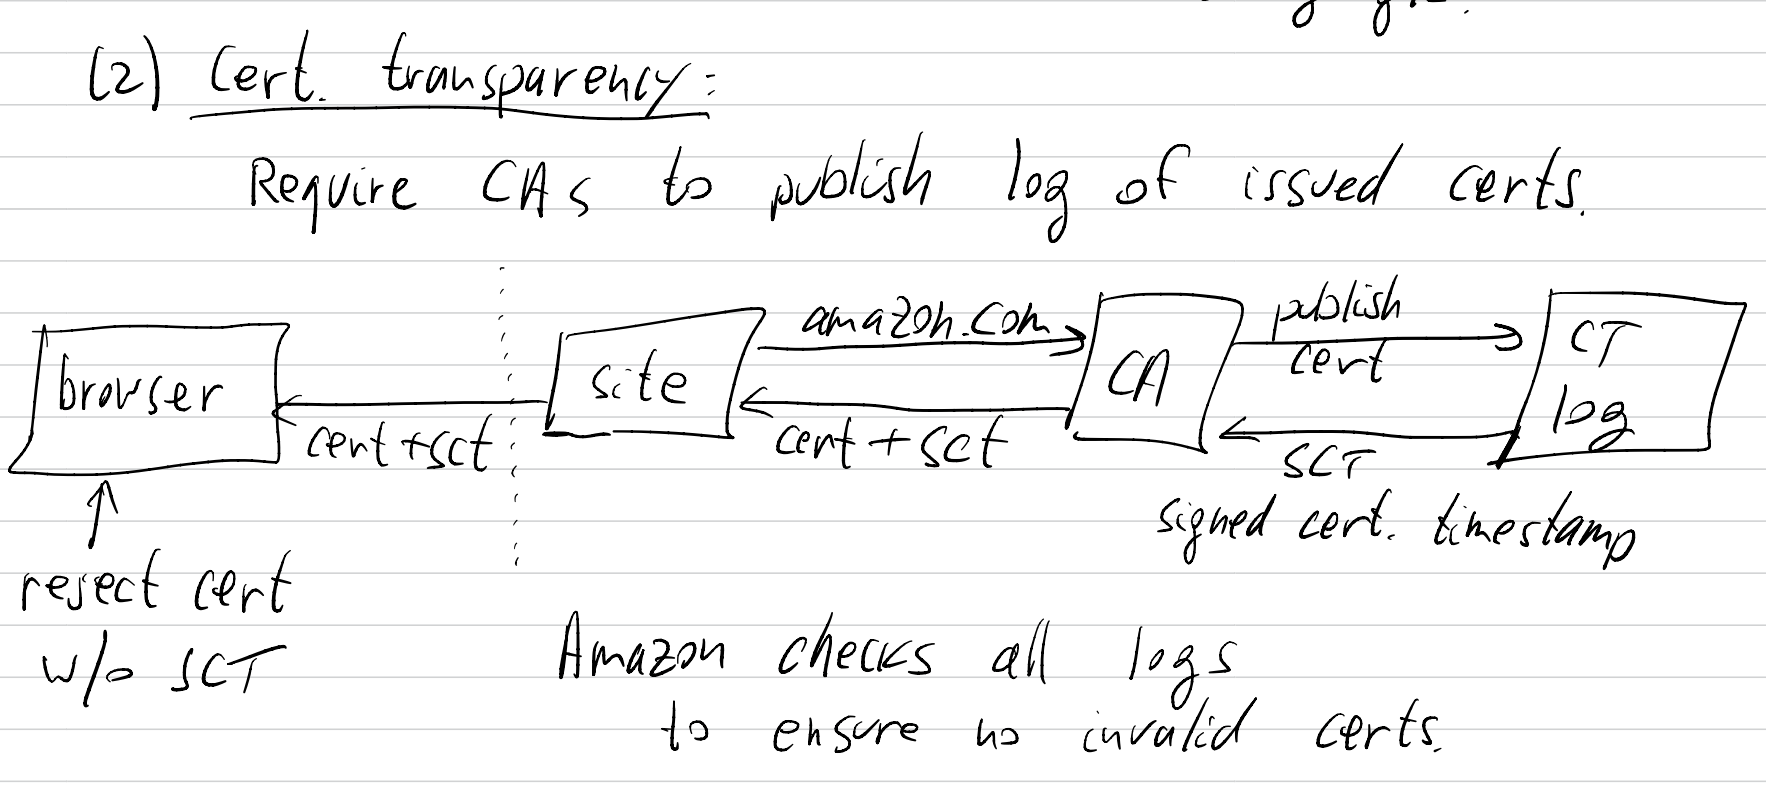 (2) Cert. transparency:
Require CAs to publish log of issued certs.
browser
cert+sct
site
amazon.com
cert + sct
CA
publish
cert
SCT
signed cert. timestamp
CT
log
reject cert
w/o SCT
Amazon checks all logs
to ensure no invalid certs.